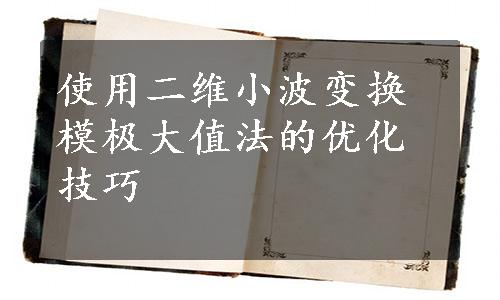 使用二维小波变换
模极大值法的优化
技巧